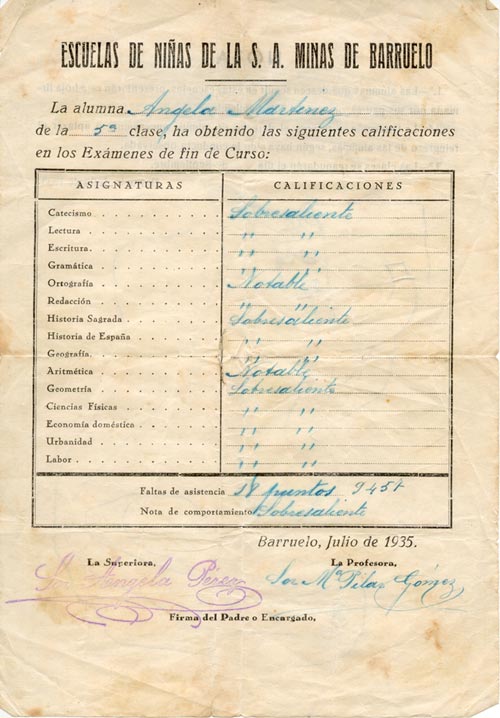 ESCUELAS DE NIÑAS DE LA S. A. MINAS DE BARRUELO
La alumna Angela Martinez
de la 5ª clase, ha obtenido las siguientes calificaciones
en los Exámenes de fin de Curso:
ASIGNATURAS CALIFICACIONES
Catecismo Sobresaliente
Lectura " "
Escritura " "
Gramática " "
Ortografía Notable
Redacción " "
Historia Sagrada Sobresaliente
Historia de España " "
Geografía " "
Aritmética Notable
Geometría Sobresaliente
Ciencias Físicas " "
Economía doméstica " "
Urbanidad " "
Labor " "
Faltas de asistencia puntos
Nota de comportamiento Sobresaliente
Barruelo, Julio de 1935.
La Superiora, La Profesora,
Sor Angela Pérez Sor Mª Pilar Gómez
Firma del Padre o Encargado,